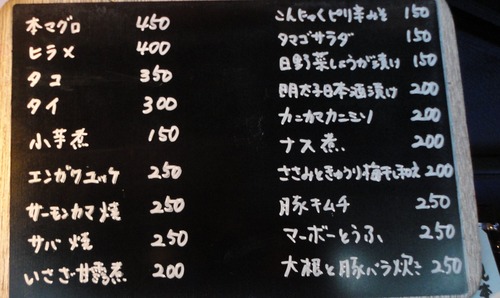 本マグロ 450
ヒラメ 400
タコ 350
タイ 300
小芋煮 150
エンガワユッケ 250
サーモンカマ焼 250
サバ焼 250
いさざ甘露煮 200
こんにゃくピリ辛みそ 150
タマゴサラダ 150
日野菜しょうが漬け 150
明太子日本酒漬け 200
カニカマカニミソ 200
ナス煮 200
ささみときゅうり梅干し和え 200
豚キムチ 250
マーボーとうふ 250
大根と豚バラ炊き 250